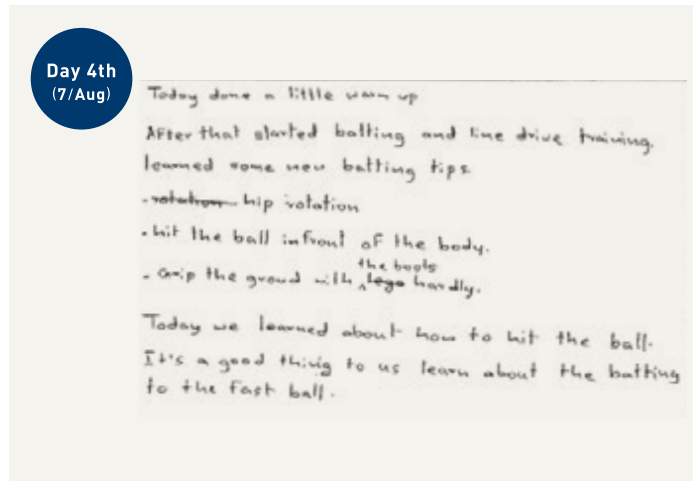 Day 4th
(7/Aug)
Today done a little warm up
After that started batting and line drive training.
learned some new batting tips.
- rotation hip rotation
- hit the ball infront of the body.
the boots
- Grip the ground with legs hardly.
Today we learned about how to hit the ball.
It's a good thing to us learn about the batting
to the fast ball.